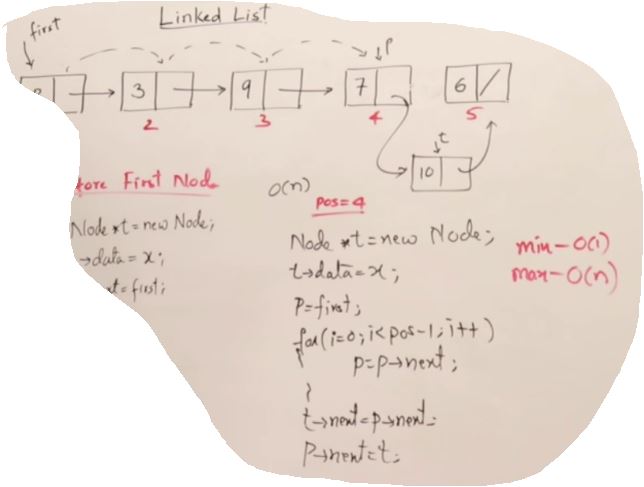 Linked List
first
p
3
9
7
6 /
2
3
4
5
t
10
First Node
O(n)
pos=4
Node *t=new Node;
→data=x;
t=first;
Node *t=new Node;
t→data=x;
P=first;
for(i=0;i<pos-1;i++)
{
p=p→next;
}
t→next=p→next;
P→next=t;
min-O(1)
max-O(n)